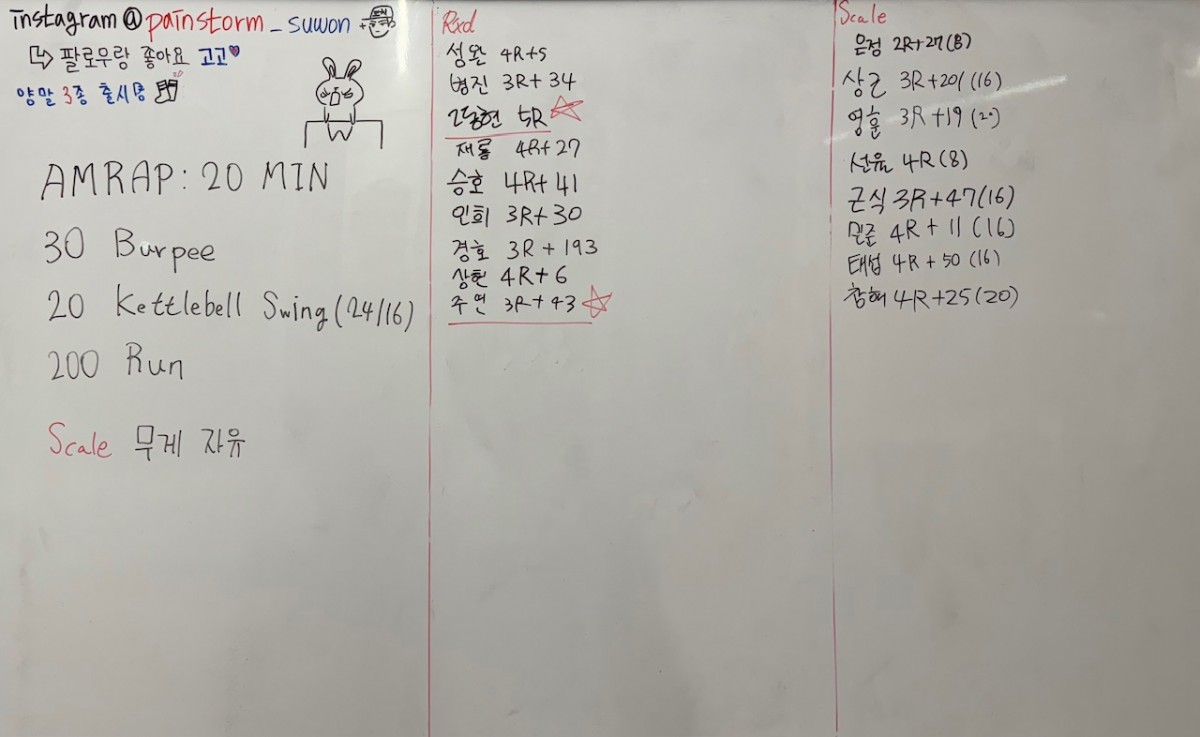 instagram@painstorm_suwon
팔로우랑 좋아요 고고
양말 3종 출시중
AMRAP: 20 MIN
30 Burpee
20 Kettlebell Swing (24/16)
200 Run
Scale 무게 자유
Rxd
성완 4R+5
병진 3R+34
5R
재룡 4R+27
승호 4R+41
인희 3R+30
경호 3R+193
상현 4R+6
주연 3R+43
Scale
은정 2R+27(8)
상근 3R+201(16)
영훈 3R+19(20)
선윤 4R(8)
근식 3R+47(16)
민준 4R+11(16)
태섭 4R+50(16)
참해 4R+25(20)